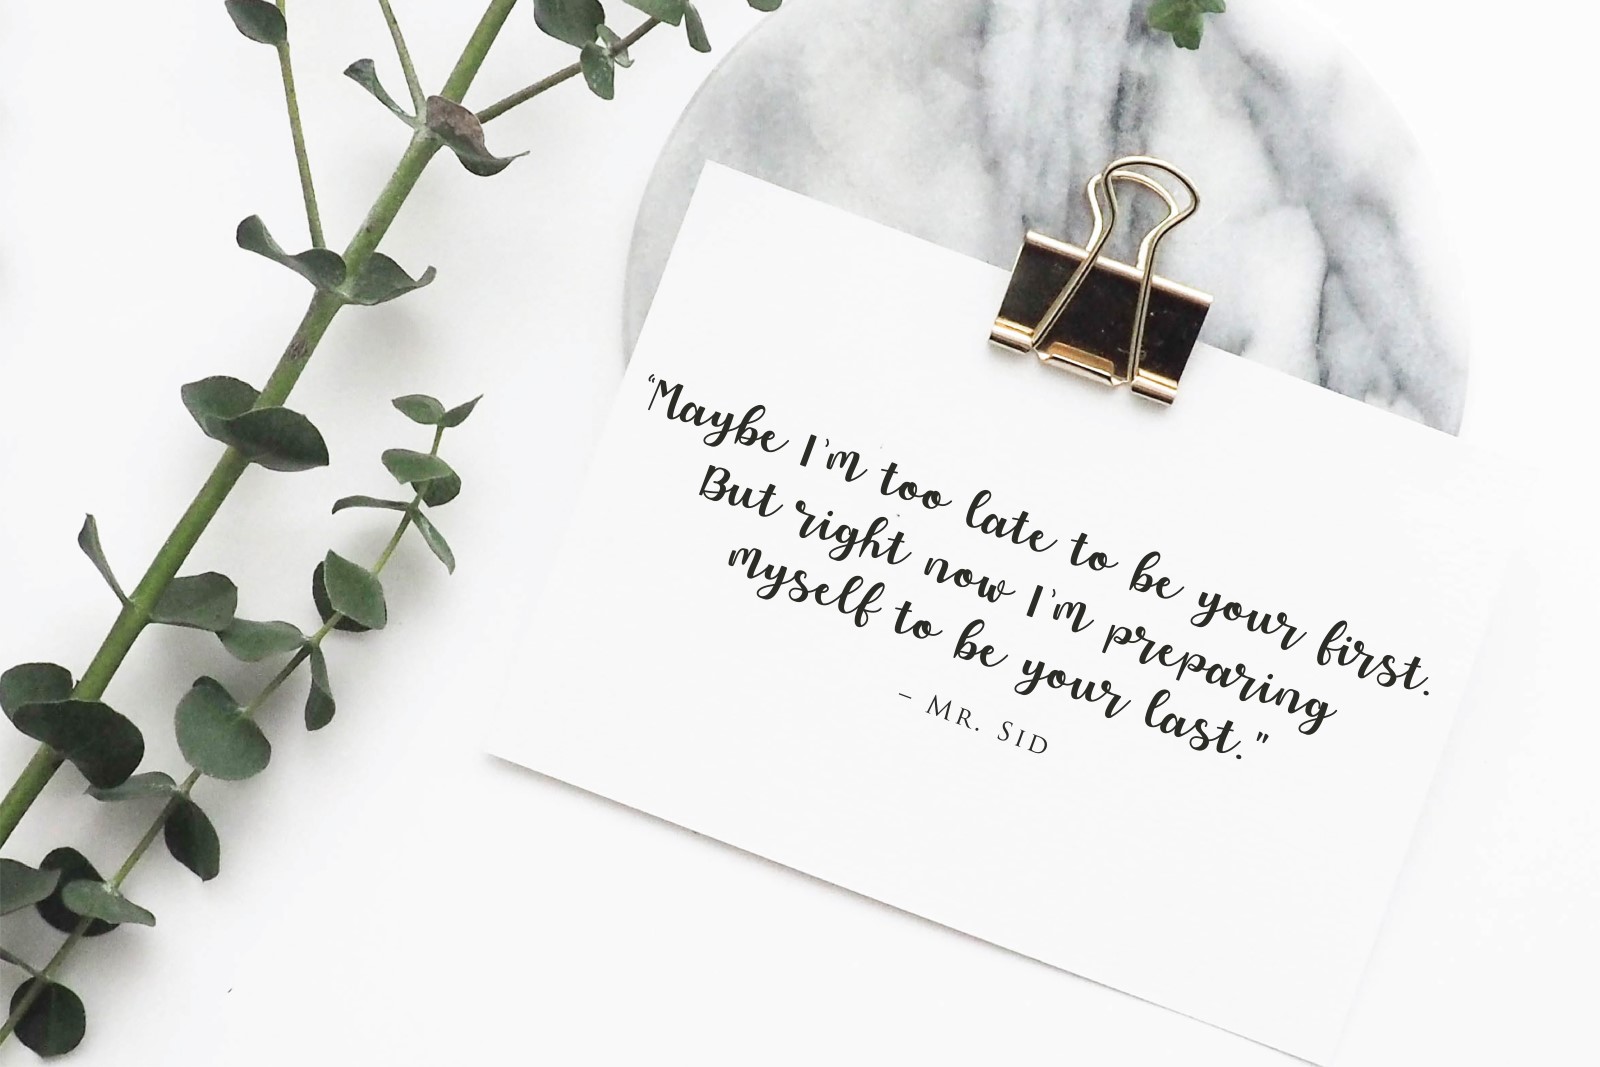 “Maybe I'm too late to be your first.
But right now I'm preparing
myself to be your last."
– Mr. Sid